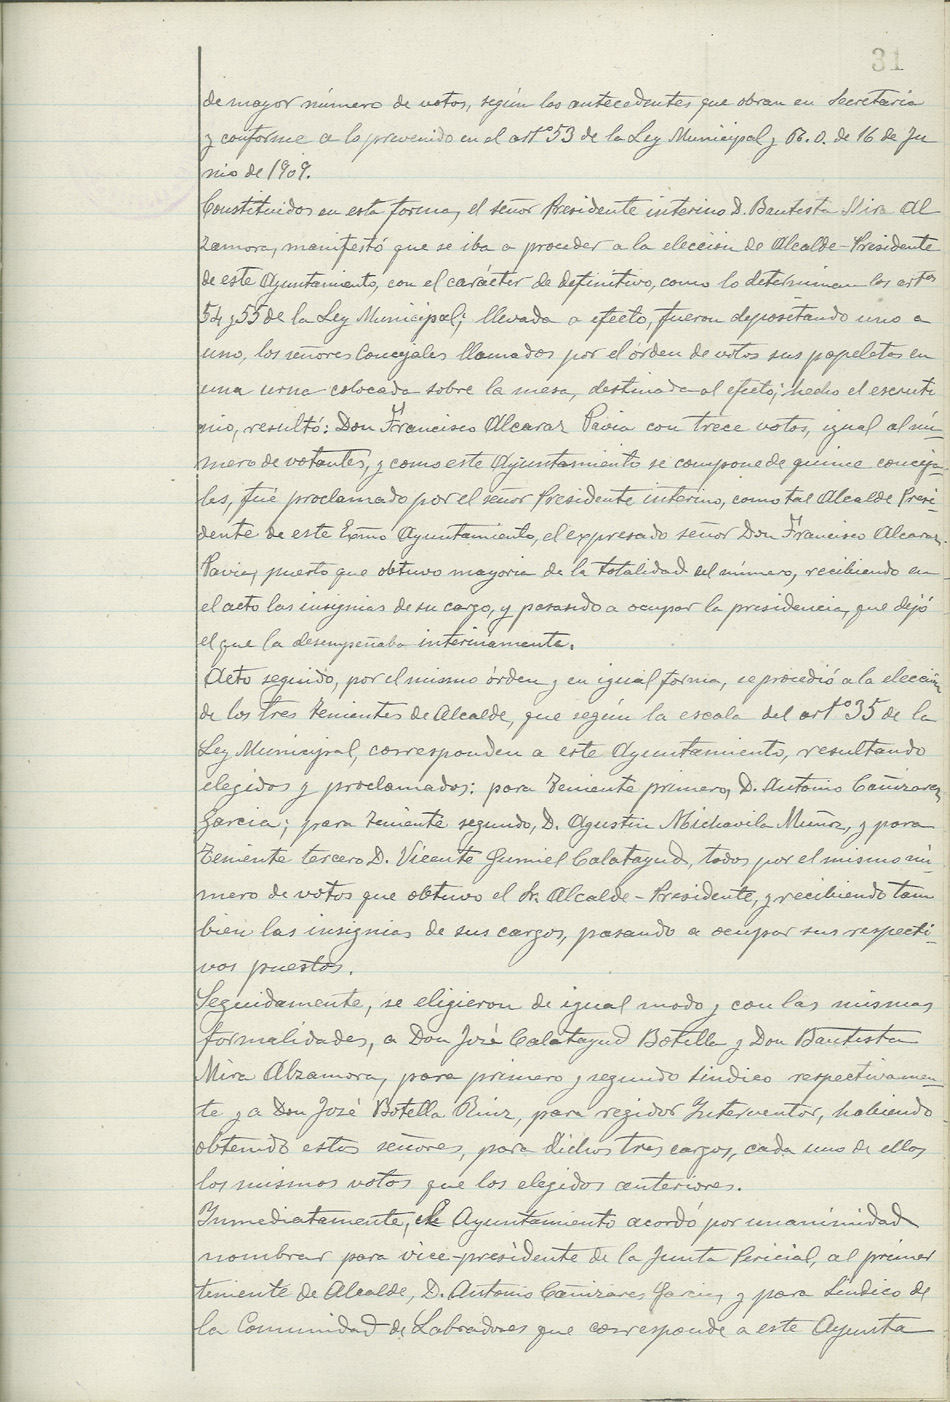 31
de mayor número de votos, según los antecedentes que obran en Secretaria
y conforme a lo prevenido en el artº 53 de la Ley Municipal y R. O. de 16 de Ju
nio de 1909.
Constituidos en esta forma, el señor Presidente interino D. Bautista Mira Al
zamora, manifestó que se iba a proceder a la elección de Alcalde-Presidente
de este Ayuntamiento, con el carácter de definitivo, como lo determinan los artos
54 y 55 de la Ley Municipal; llevada a efecto, fueron depositando uno a
uno, los señores Concejales llamados por el órden de votos sus papeletas en
una urna colocada sobre la mesa, destinada al efecto; hecho el escruti
nio, resultó: Don Francisco Alcaraz Pavia con trece votos, igual al nú-
mero de votantes, y como este Ayuntamiento se compone de quince conceja-
les, fué proclamado por el señor Presidente interino, como tal Alcalde Presi-
dente de este Exmo Ayuntamiento, el expresado señor Don Francisco Alcaraz
Pavia, puesto que obtuvo mayoria de la totalidad del número, recibiendo en
el acto las insignias de su cargo, y pasando a ocupar la presidencia, que dejó
el que la desempeñaba interinamente.
Acto seguido, por el mismo órden y en igual forma, se procedió a la elección
de los tres tenientes de Alcalde, que según la escala del artº 35 de la
Ley Municipal, corresponden a este Ayuntamiento, resultando
elegidos y proclamados: para Teniente primero, D. Antonio Cañizares
Garcia; para teniente segundo, D. Agustin Michavila Muñoz, y para
Teniente tercero D. Vicente Gumiel Calatayud, todos por el mismo nú-
mero de votos que obtuvo el Sr. Alcalde-Presidente, y recibiendo tam
bien las insignias de sus cargos, pasando a ocupar sus respecti-
vos puestos.
Seguidamente, se eligieron de igual modo y con las mismas
formalidades, a Don José Calatayud Botella y Don Bautista
Mira Alzamora, para primero y segundo Sindico respectivamen-
te y a Don José Botella Rinz, para regidor Interventor, habiendo
obtenido estos señores, para dichos tres cargos, cada uno de ellos
los mismos votos que los elegidos anteriores.
Inmediatamente, el Ayuntamiento acordó por unanimidad
nombrar para vice-presidente de la Junta Pericial, al primer
teniente de Alcalde, D. Antonio Cañizares Garcia, y para Sindico de
la Comunidad de Labradores que corresponde a este Ayunta